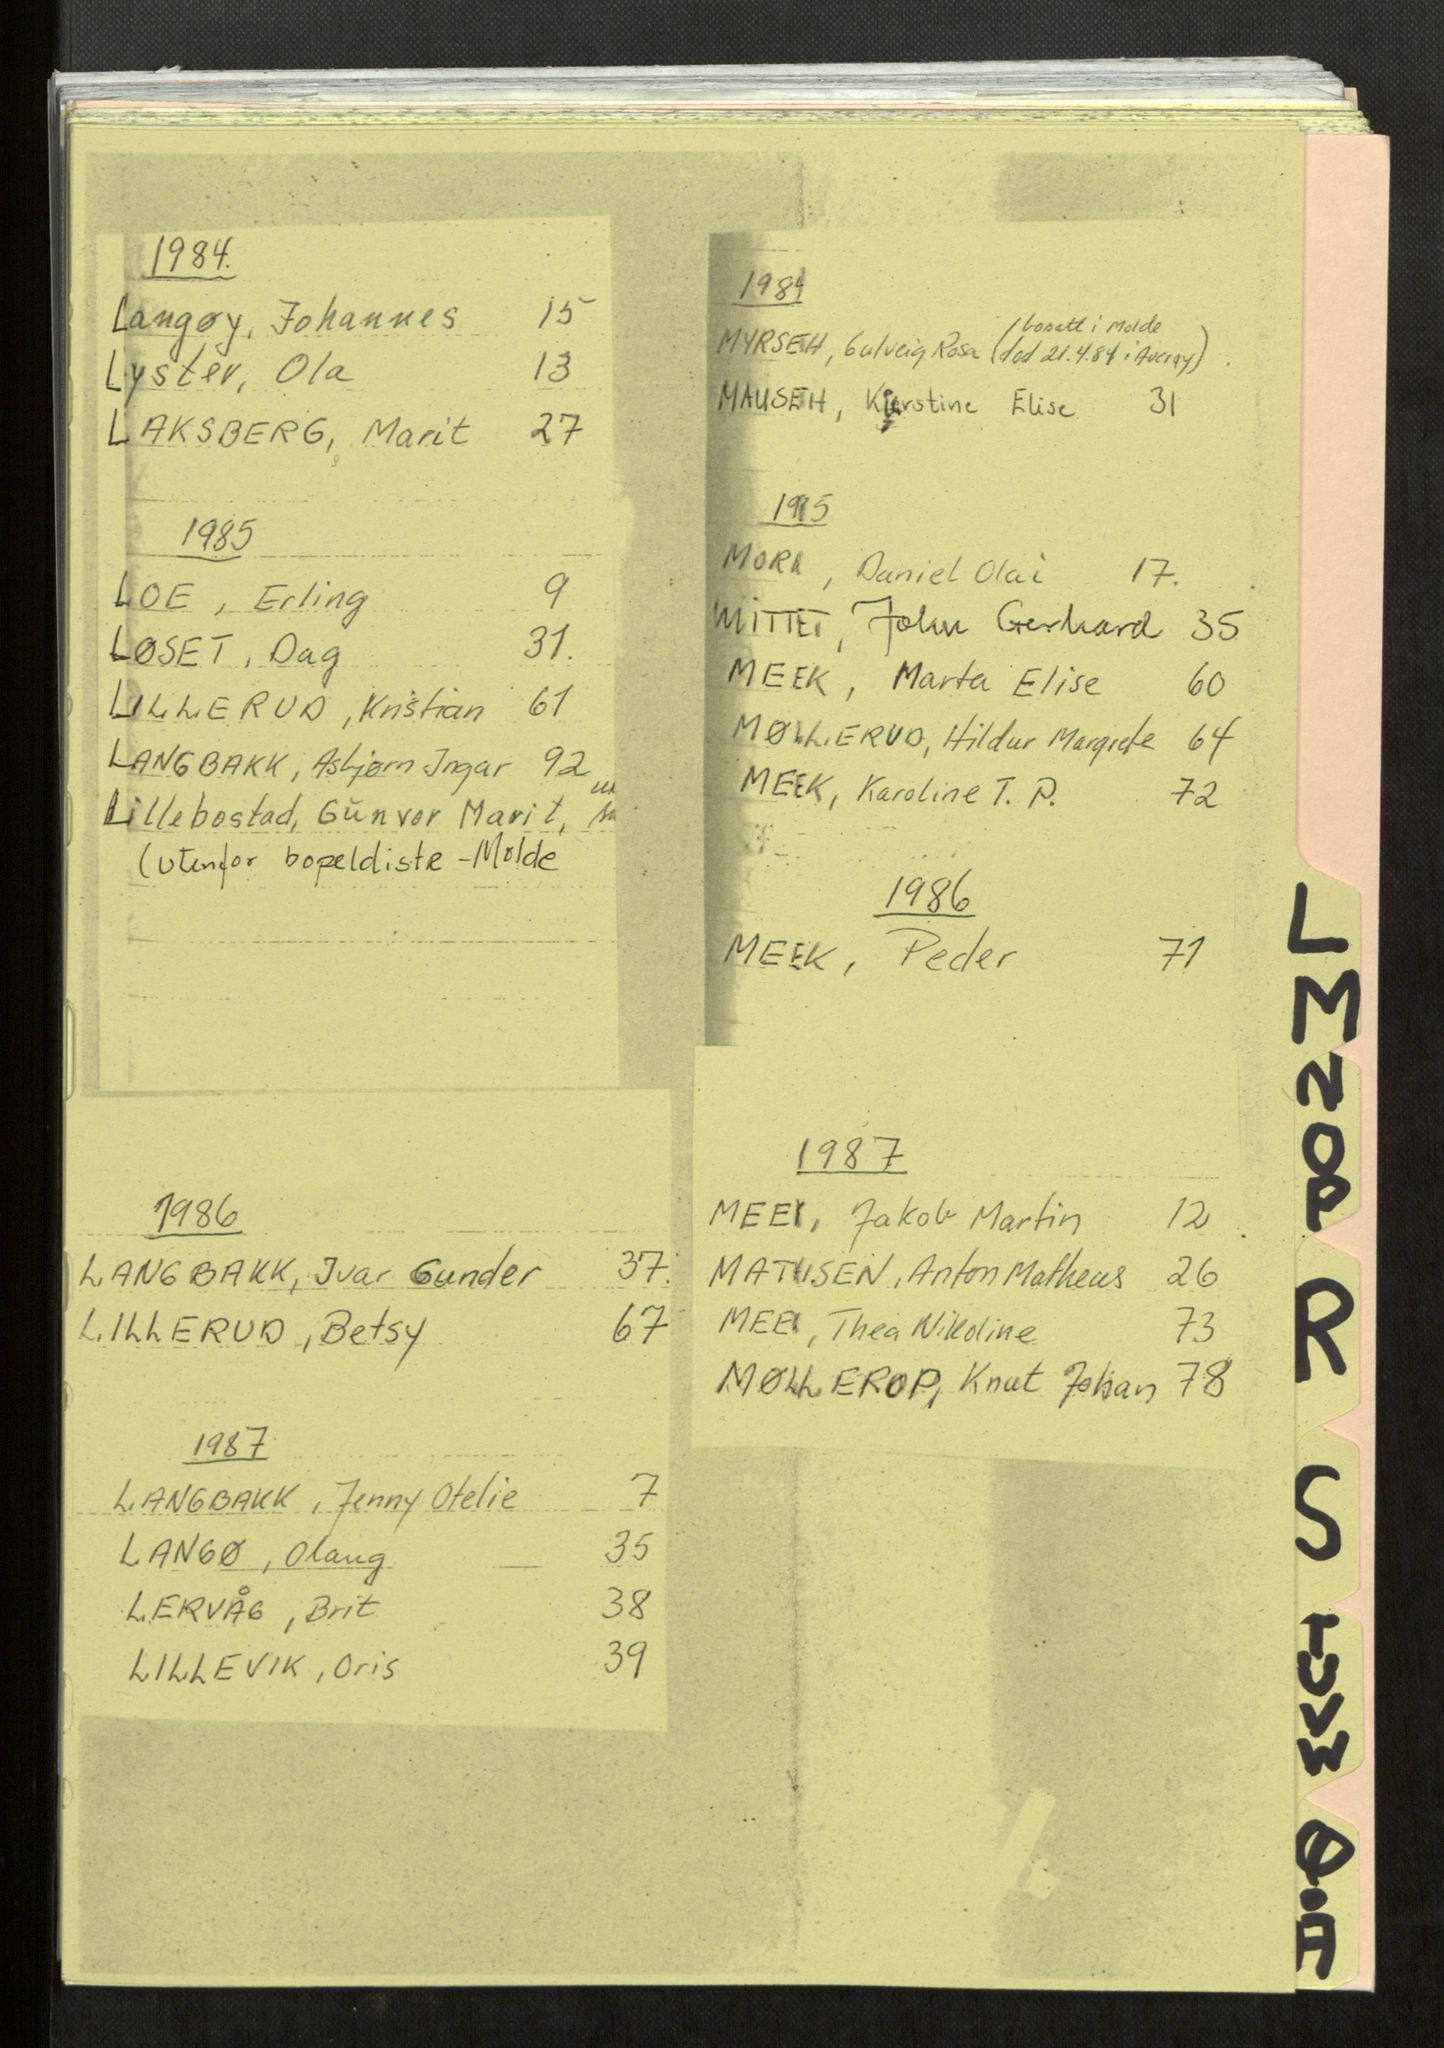 1984.
Langøy, Johannes 15
Lyster, Ola 13
LAKSBERG, Marit 27
1985
LOE, Erling 9
LØSET, Dag 31.
LILLERUD, Kristian 61
LANGBAKK, Asbjørn Ingar 92
Lillebostad, Gunvor Marit,
(utenfor bopeldistr - Molde
1986
LANGBAKK, Ivar Gunder 37.
LILLERUD, Betsy 67
1987
LANGBAKK, Jenny Otelie 7
LANGØ, Olaug 35
LERVÅG, Brit 38
LILLEVIK, Oris 39
1984
(bosatt i Molde
MYRSETH, Gulveig Rosa død 21.4.84 i Averøy)
MAUSETH, Kjerstine Elise 31
1985
Daniel Olai 17.
MITTET, John Gerhard 35
MEEK, Marta Elise 60
MØLLERUD, Hildur Margrete 64
MEEK, Karoline T. P. 72
1986
MEEK, Peder 71
1987
MEEK, Jakob Martin 12
MATHISEN, Anton Matheus 26
MEEK, Thea Nikoline 73
MØLLEROP, Knut Johan 78
L
M
N
O
P
R
S
T
U
V
W
Ø
Å